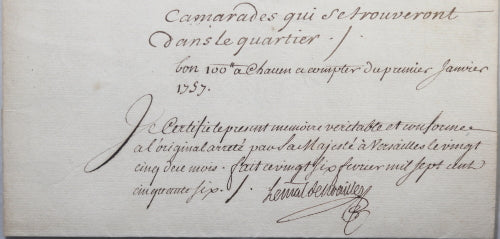 Camarades qui se trouveront
dans le quartier ./.
bon 100# a Chacun a compter du premier Janvier
1757.
Je Certifie le present memoire veritable et conforme
a l'original areté par Sa Majesté à Versailles le vingt
cinq du mois. fait ce vingt Six fevrier mil Sept Cent
cinquante Six ./.
Le mal de Noailles